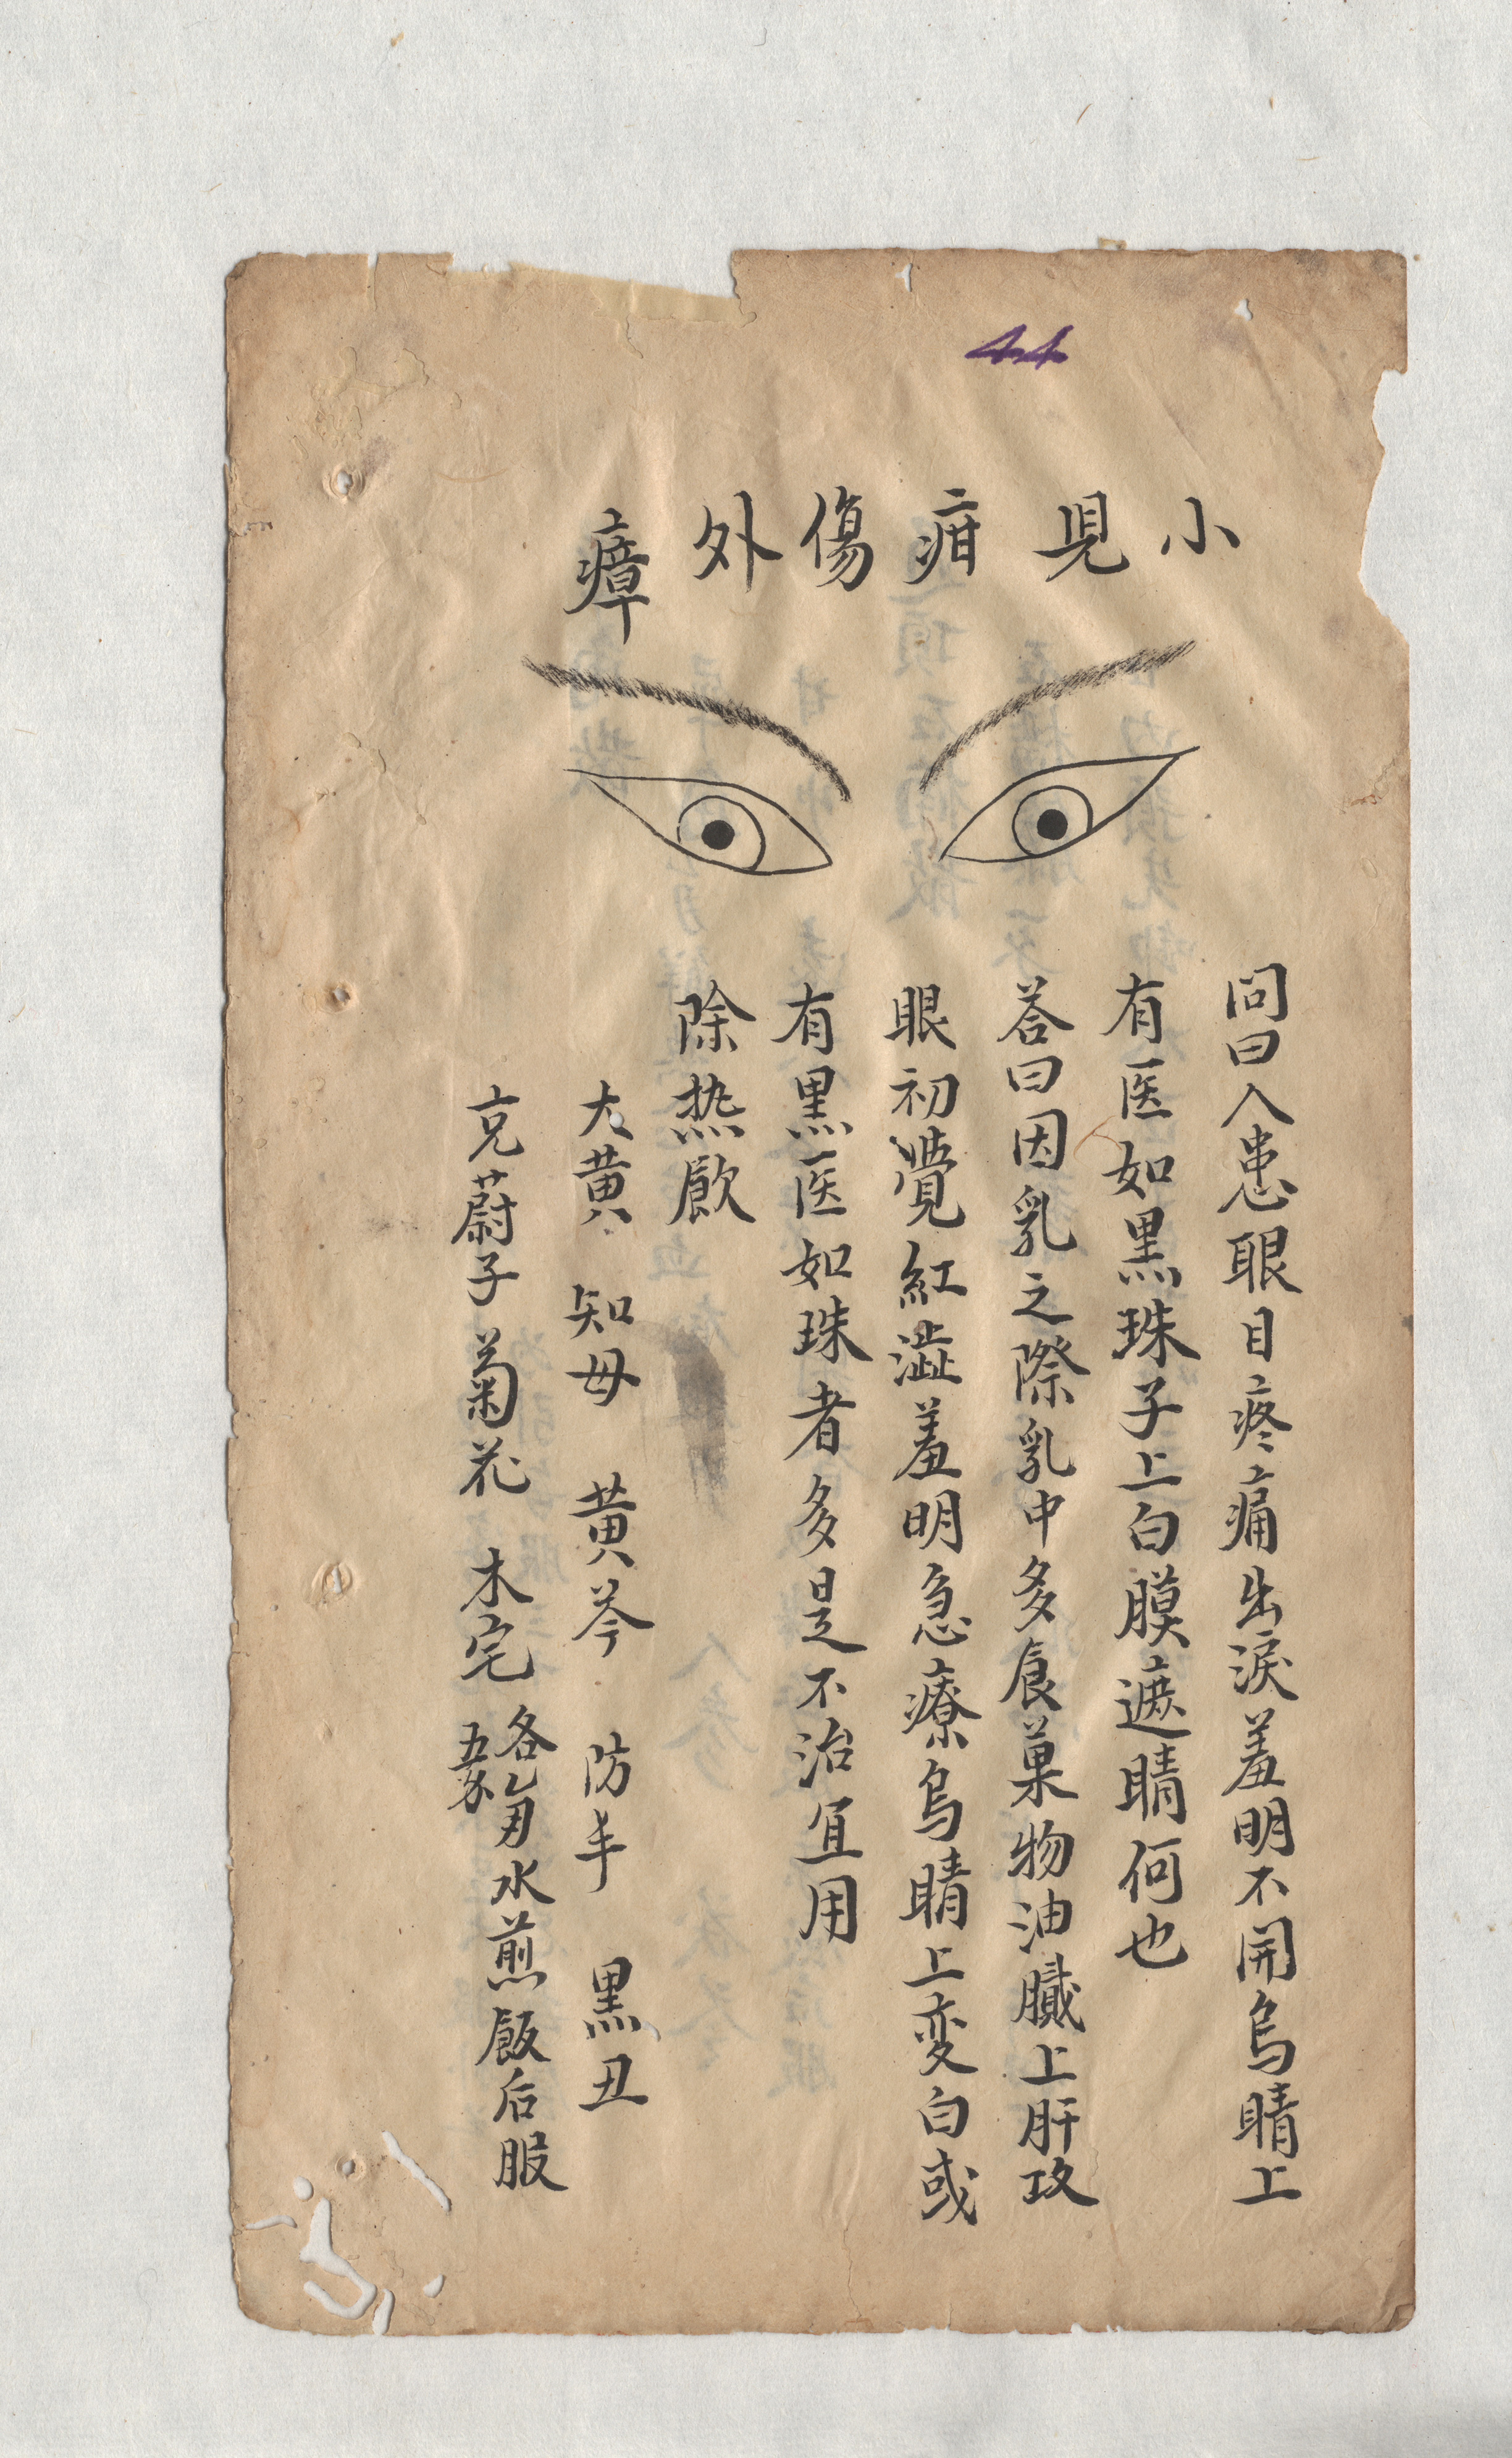 44
小児疳傷外瘴
問曰人患眼目疼痛出淚羞明不開烏睛上
有医如黒珠子上白膜遮睛何也
荅曰因乳之際乳中多食菓物油膩上肝攻
眼初覺紅澁羞明急療烏睛上变白或
有黒医如珠者多是不治宜用
除热飲
大黄 知母 黄芩 防丰 黒丑
茺蔚子 菊花 木宅 各 水煎飯后服